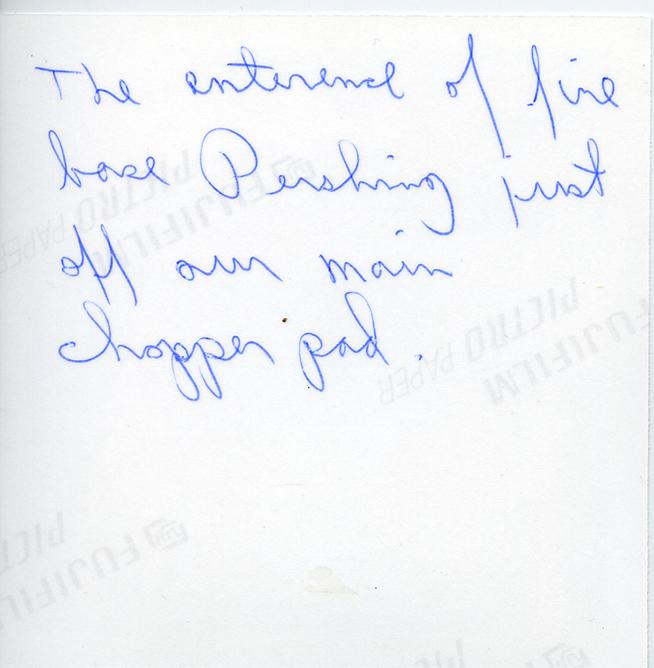 The enterence of fire
base Pershing just
off our main
chopper pad.
FUJIFILM
PICTRO PAPER
FUJIFILM
PICTRO PAPER
FUJIFILM
PICTRO